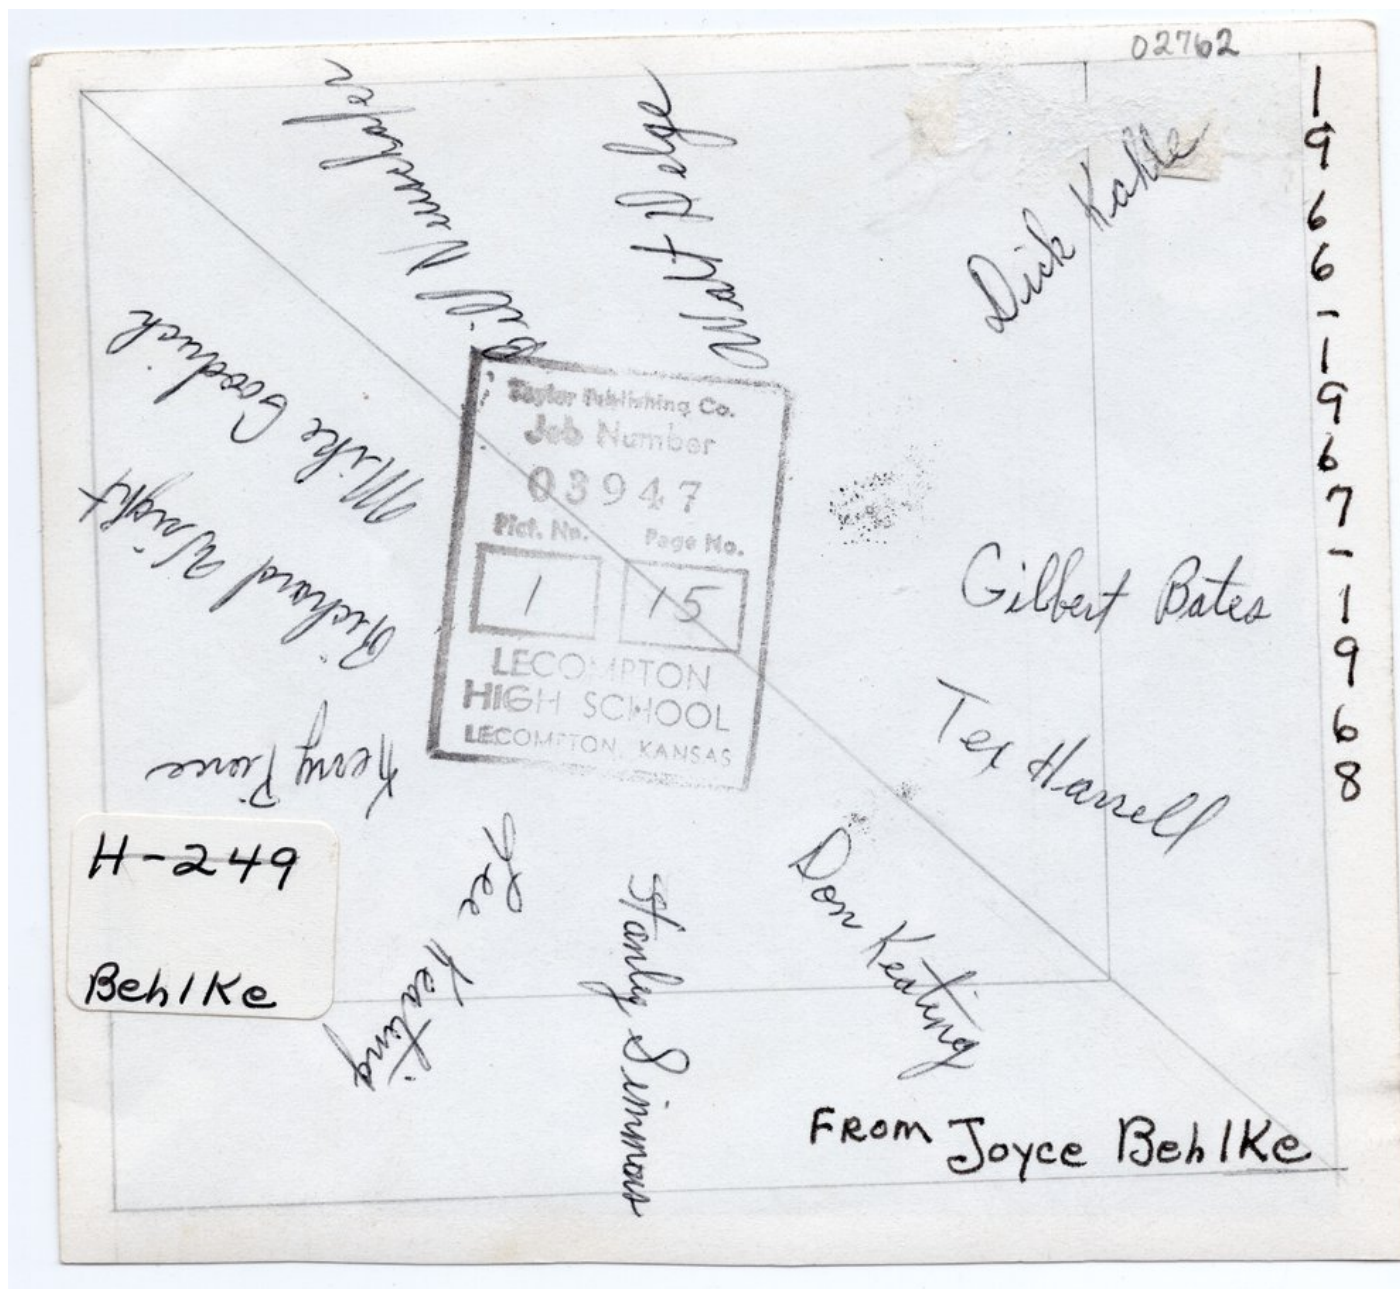 02762
1966-1967-1968
Dick Kahle
Walt Hege
Bill Newschafer
Mike Goodrich
Richard Wright
Kerry Pierce
Lee Keating
Stanley Simmons
Don Keating
Tex Harrell
Gilbert Bates
Taylor Publishing Co.
Job Number
03947
Pict. No. Page No.
1 15
LECOMPTON
HIGH SCHOOL
LECOMPTON, KANSAS
H-249
Behlke
FROM Joyce Behlke